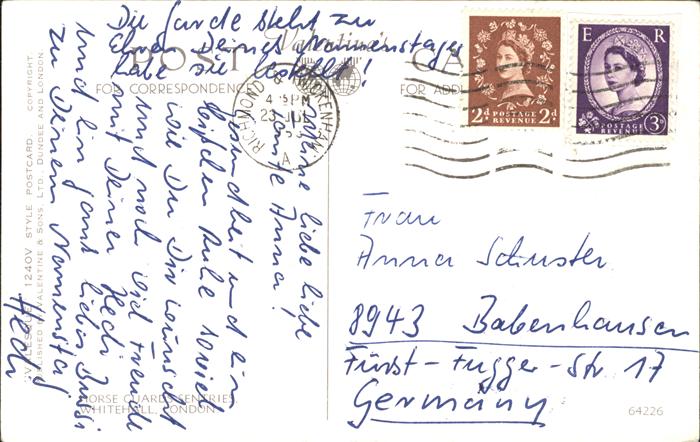 Die Garde steht zu
Ehren Deines Namenstages
habe sie bestellt!
POST CARD
Valentine's
FOR CORRESPONDENCE
FOR ADD
RICHMOND & TWICKENHAM
4 15 PM
23 JUL
A
2d POSTAGE REVENUE 2d
E R
POSTAGE REVENUE 3D
liebe liebe
Anna!
Gesundheit und ein
bißchen Ruhe soviel
wie Du Dir wünscht
und noch viel Freude
mit Deiner Hedi
und ein ganz liebes Bussi
zu Deinem Namenstag
Hedi!
Frau
Anna Schuster
8943 Babenhausen
Fürst-Fugger-Str. 17
Germany
"VALESQUE" 1240V STYLE POSTCARD COPYRIGHT
PUBLISHED BY VALENTINE & SONS, LTD., DUNDEE AND LONDON.
HORSE GUARDS SENTRIES,
WHITEHALL, LONDON
64226